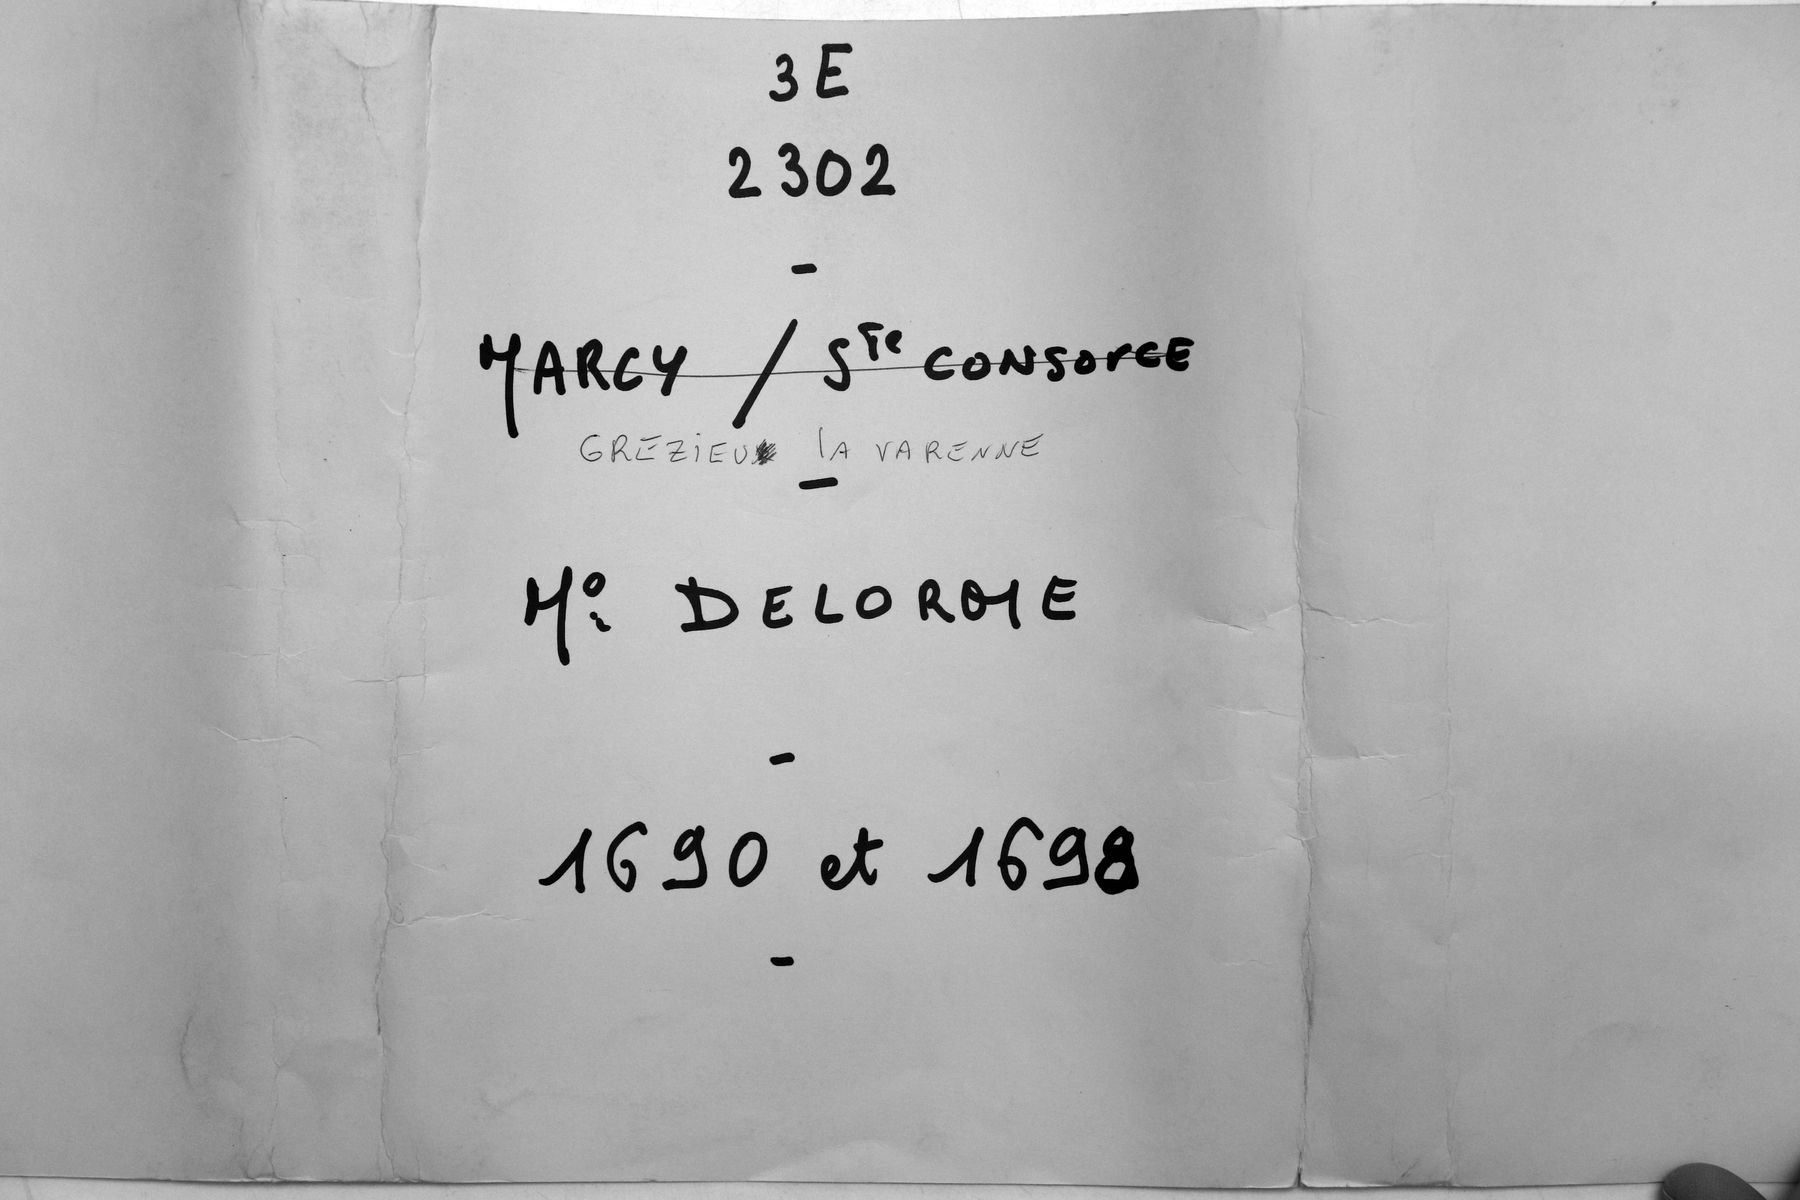 3E
2302
-
MARCY / Ste CONSORCE
GREZIEU LA VARENNE
-
Me DELORME
-
1690 et 1698
-